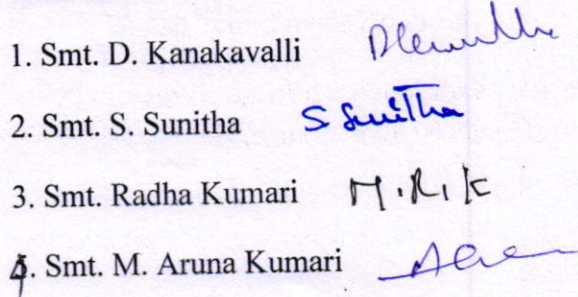 1. Smt. D. Kanakavalli
2. Smt. S. Sunitha S Sunitha
3. Smt. Radha Kumari M.R.K
4. Smt. M. Aruna Kumari